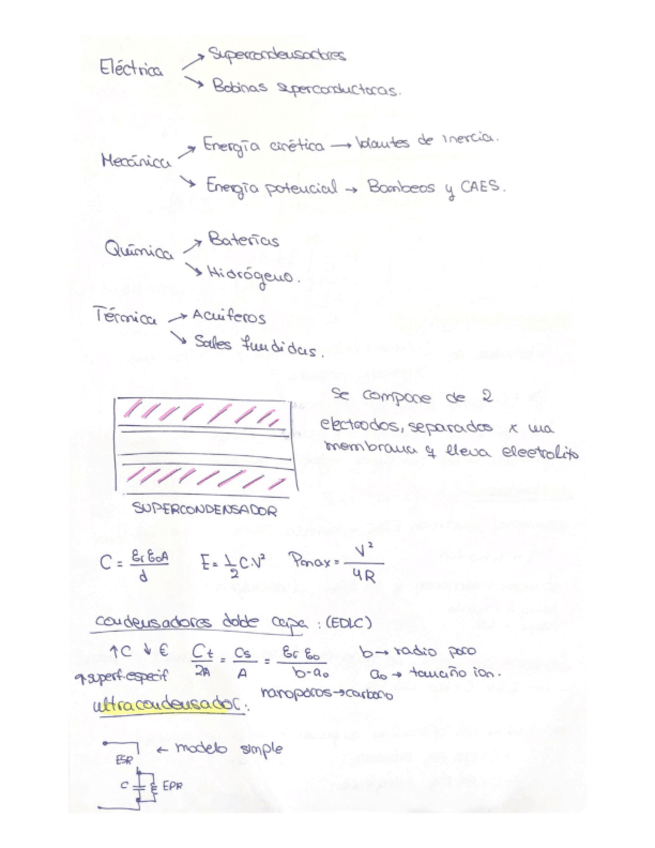 Eléctrica → Supercondensadores
↘ Bobinas superconductoras.
Mecánica → Energía cinética → Volantes de inercia.
↘ Energía potencial → Bombeos y CAES.
Química → Baterías
↘ Hidrógeno.
Térmica → Acuíferos
↘ Sales fundidas.
Se compone de 2
electrodos, separados x una
membrana y lleva electrolito
SUPERCONDENSADOR
C = εr ε0 A / d   E = 1/2 C·V²   Pmax = V² / 4R
condensadores doble capa: (EDLC)
↑C ↓€   Ct / 2A = Cs / A = εr ε0 / b-a₀   b → radio poro
↑superf. especif   a₀ → tamaño ion.
nanoporos → carbono
ultracondensador:
← modelo simple
ESR
C   EPR